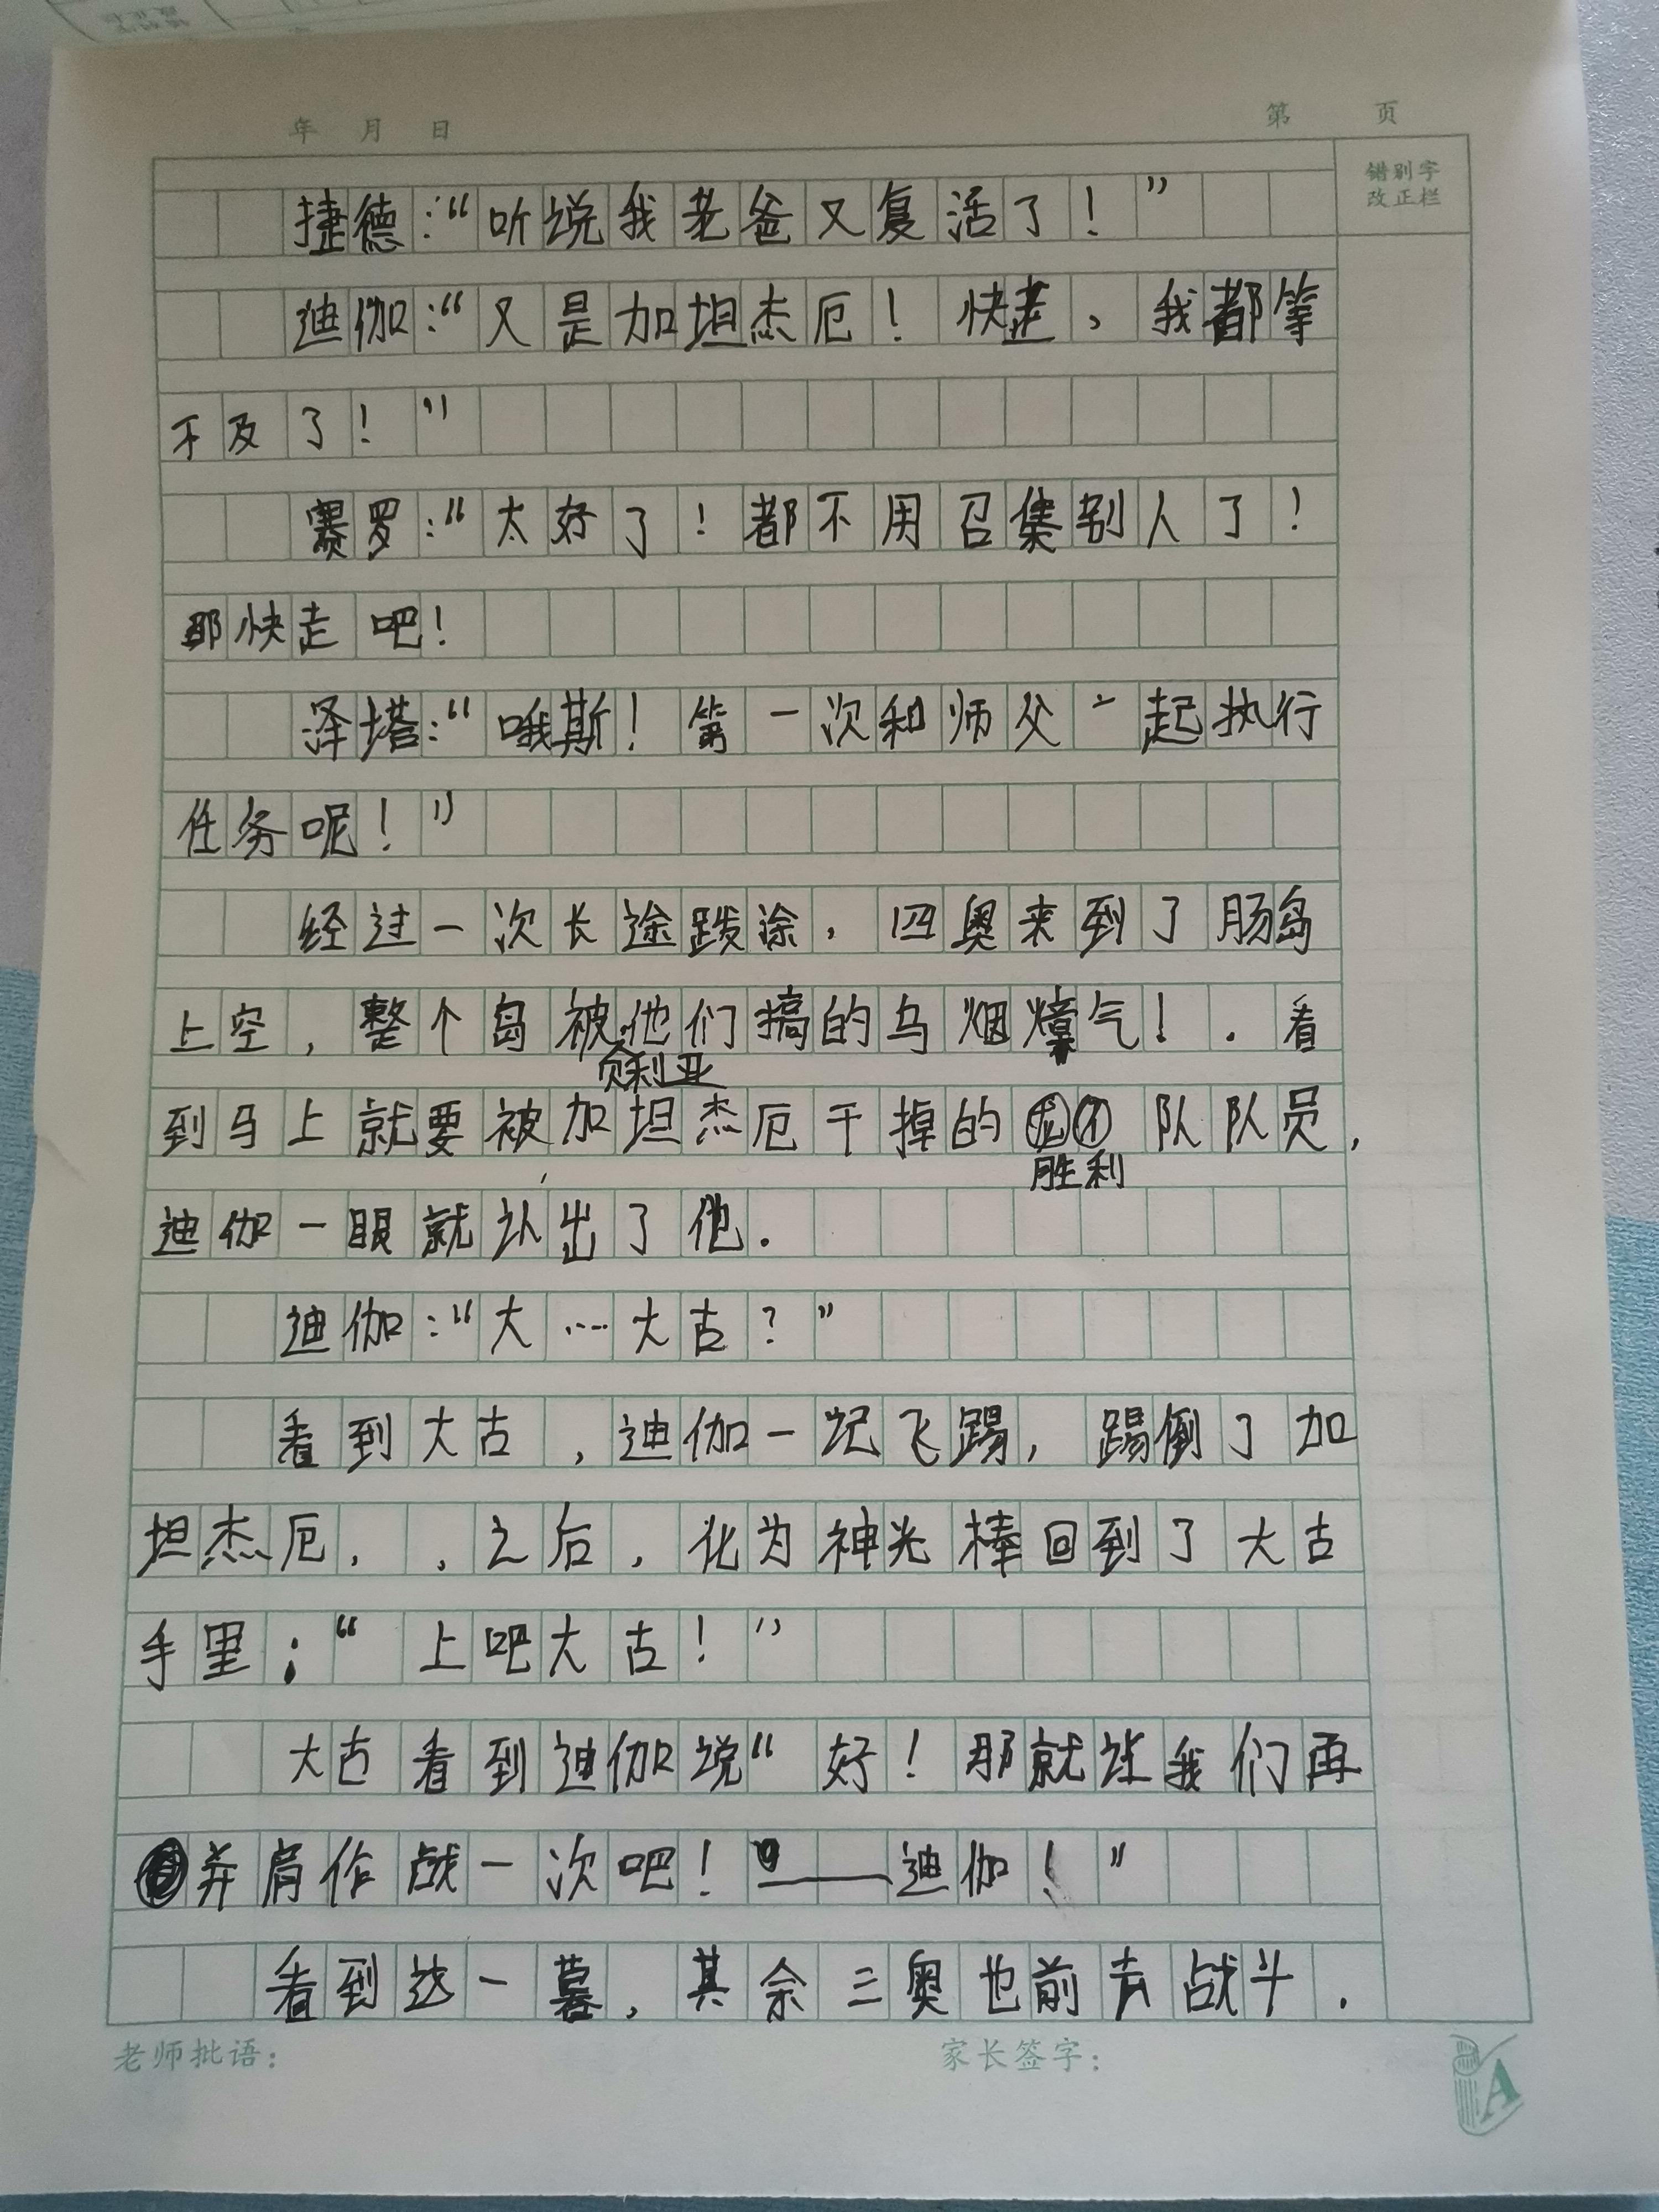 年 月 日
第 页
错别字
改正栏
捷德:“听说我老爸又复活了!”
迪伽:“又是加坦杰厄!快走,我都等
不及了!”
赛罗:“太好了!都不用召集别人了!
那快走吧!
泽塔:“哦斯!第一次和师父一起执行
任务呢!”
经过一次长途跋涂,四奥来到了肠岛
上空,整个岛被他们搞的乌烟燻气!.看
贝利亚
到马上就要被加坦杰厄干掉的 队队员,
胜利
迪伽一眼就认出了他.
迪伽:“大……大古?”
看到大古,迪伽一记飞踢,踢倒了加
坦杰厄,,之后,化为神光棒回到了大古
手里:“上吧大古!”
大古看到迪伽说“好!那就让我们再
并肩作战一次吧!——迪伽!”
看到这一幕,其余三奥也前去战斗.
老师批语:
家长签字:
A